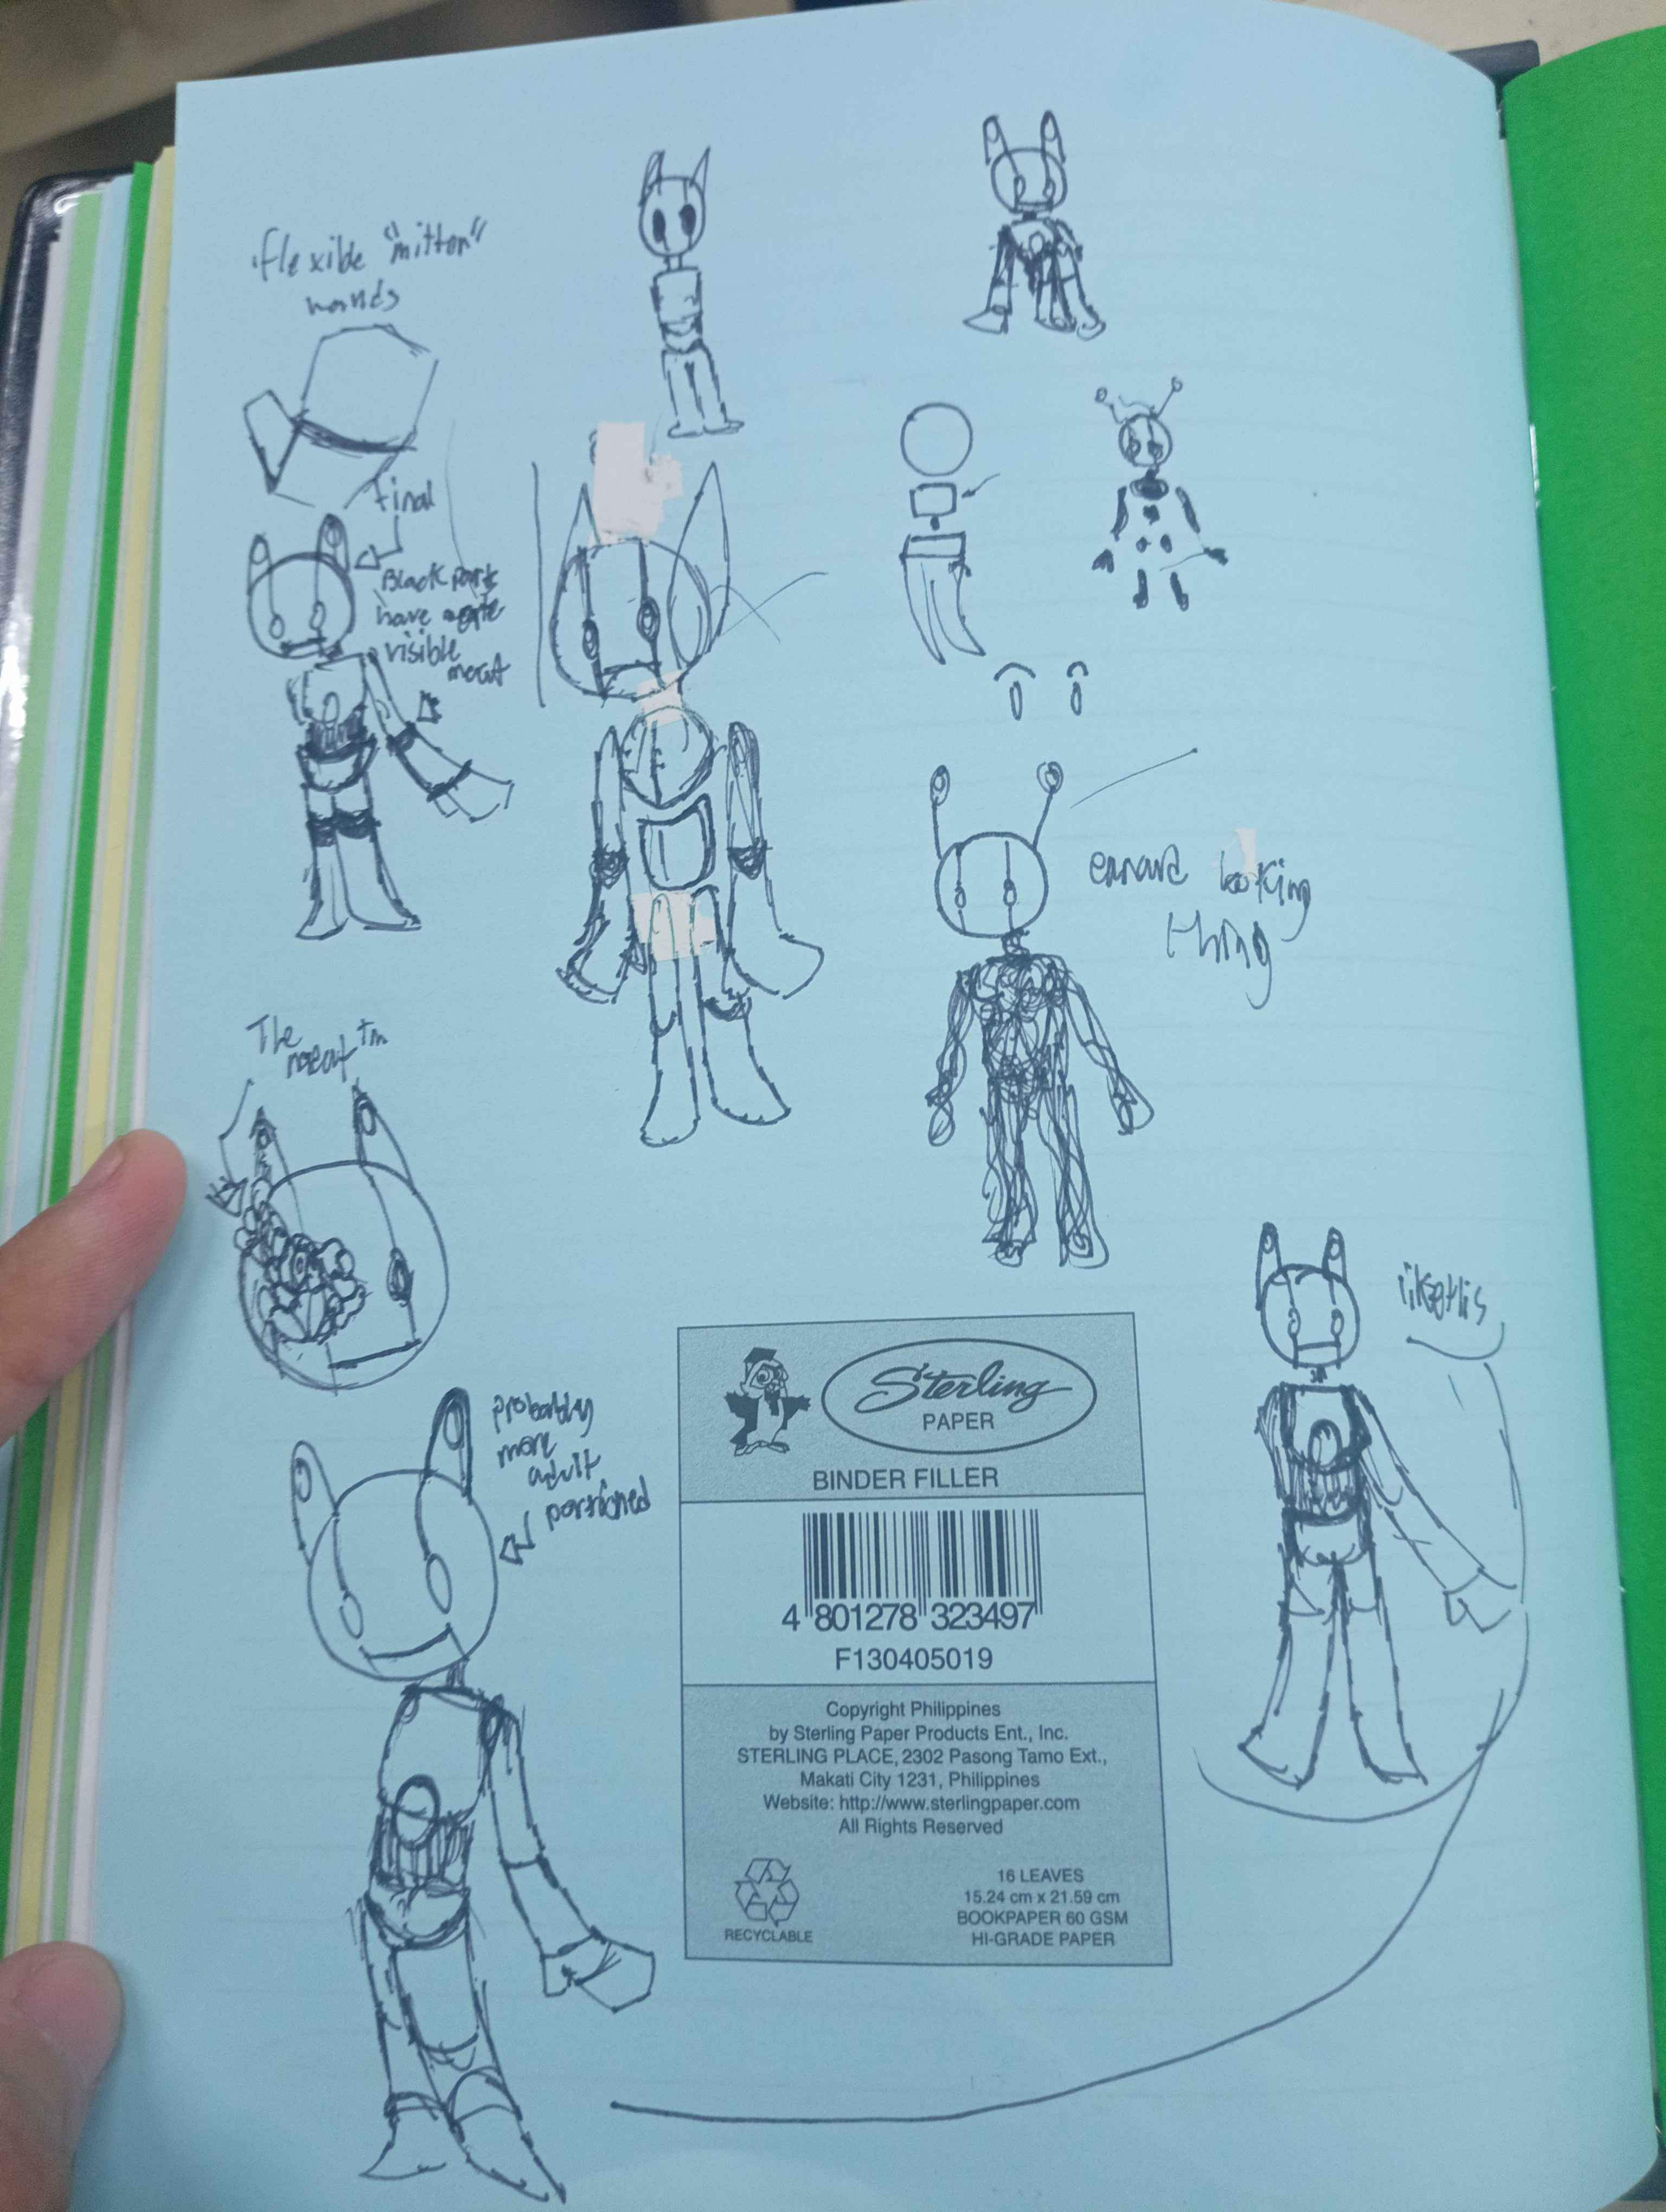 flexible "mitten"
hands
final
Black parts
have
visible
meat
ennard looking
thing
The
meat™
probably
more
adult
portioned
likethis
Sterling
PAPER
BINDER FILLER
4 801278 323497
F130405019
Copyright Philippines
by Sterling Paper Products Ent., Inc.
STERLING PLACE, 2302 Pasong Tamo Ext.,
Makati City 1231, Philippines
Website: http://www.sterlingpaper.com
All Rights Reserved
RECYCLABLE
16 LEAVES
15.24 cm x 21.59 cm
BOOKPAPER 60 GSM
HI-GRADE PAPER